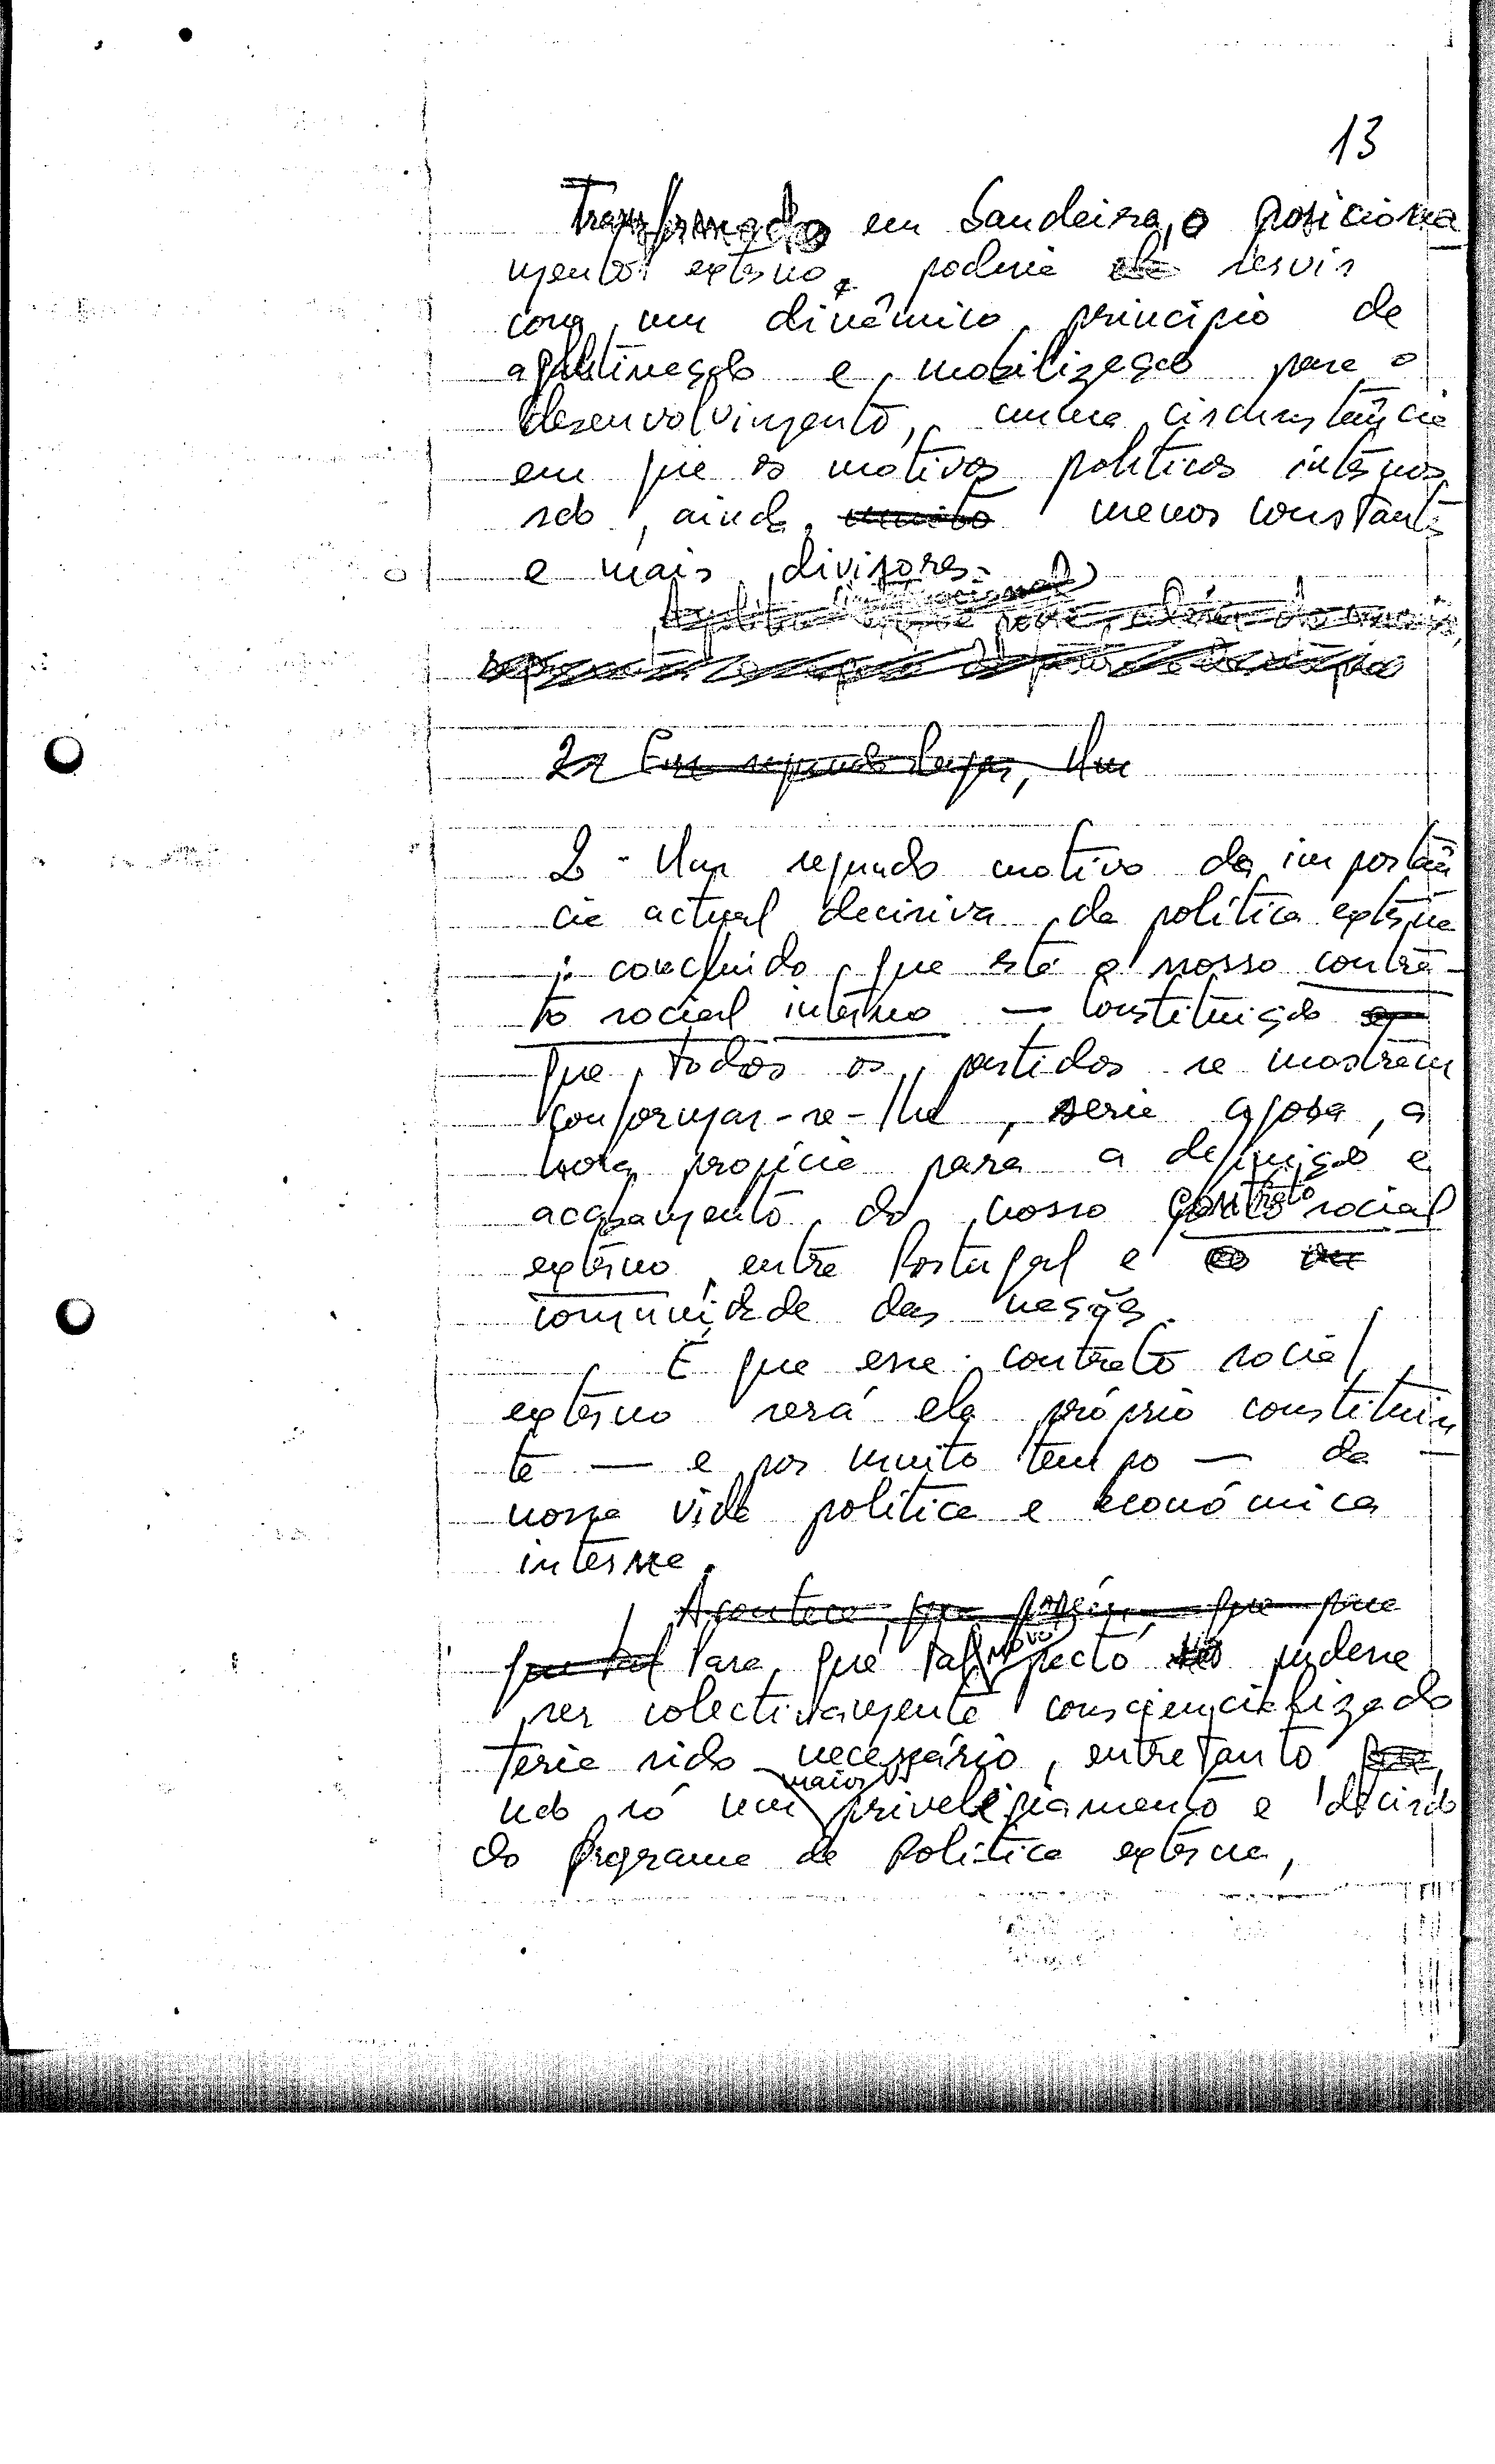 13
Transformado em bandeira, o posiciona
mento externo, poderia servir
como um dinâmico princípio de
aglutinação e mobilização para o
desenvolvimento, numa circunstância
em que os motivos políticos internos
são, ainda, muito menos constantes
e mais divisores.
(institucional)
2 Em segundo lugar, Um
2 - Um segundo motivo da importân
cia actual decisiva da política externa
: concluído que está o nosso contra-
to social interno — Constituição
que todos os partidos se mostram
conformar-se-lhe, seria agora, a
hora propícia para a definição e
acabamento do nosso contrato social
externo, entre Portugal e
comunidade das nações.
É que esse contrato social
externo será ele próprio constituin
te — e por muito tempo — da
nossa vida política e económica
interna.
Acontece, que porém, que para
que tal Para que tal novo pacto pudesse
ser colectivamente consciencializado
teria sido necessário, entretanto,
não só um maior privelegiamento e decisão
do programa de política externa,